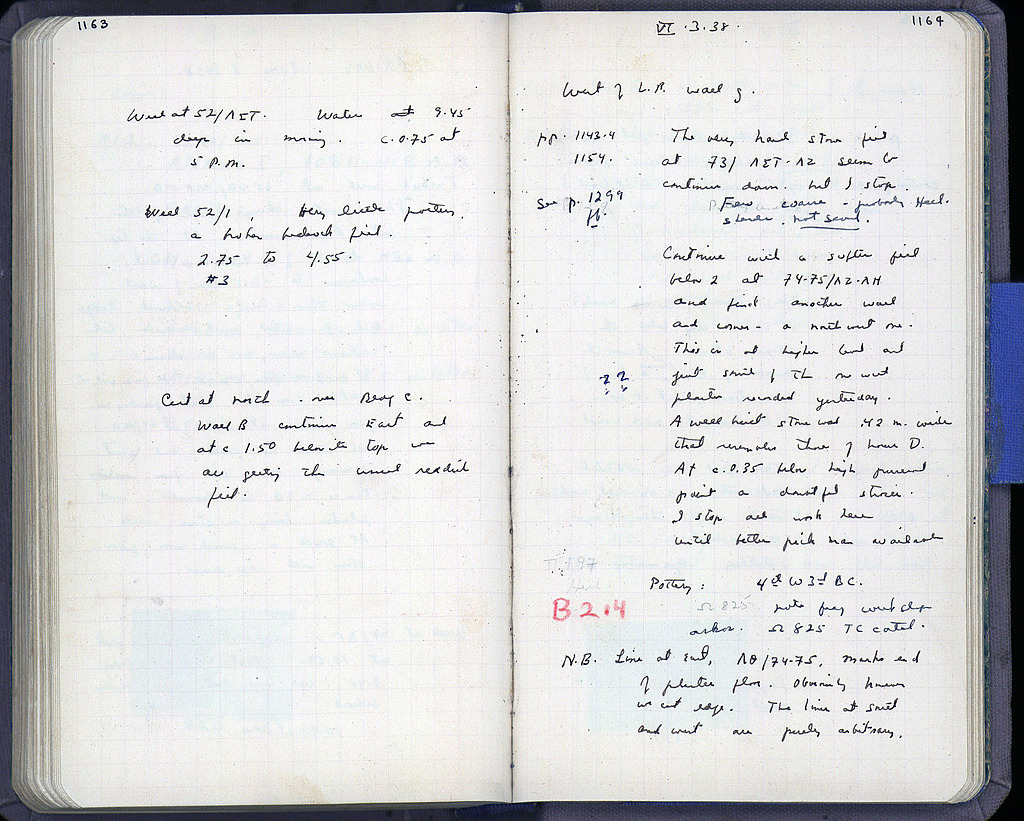 1163
Well at 52/ΛΣΤ. Water at 9.45
deep in morning. c.0.75 at
5 P.M.
Well 52/1. Very little pottery,
a broken bedrock fill.
2.75 to 4.55.
#3
Cut at north. over
Wall B continues East and
at c 1.50 below its top we
are getting the usual reddish
fill.
1164
VI.3.38.
West of L.R. wall g.
pp. 1143-4
1154.
See p. 1299
ff.
The very hard stone fill
at 73/ seems to
continue down. but I stop.
Few coarse - probably Hell.
sterile. not saved.
Continue with a softer fill
below 2 at 74-75/
and find another wall
and corner - a northwest one.
This is at higher level and
just south of the
22
plaster recorded yesterday.
A well built stone wall .42 m. wide
that resembles those of house D.
At c.0.35 below high preserved
point a doubtful
I stop all work here
until better pick man available
Pottery: 4th to 3rd BC.
Ω 825 note
B 2.4
askos. Ω 825 TC catal.
N.B. Line at East, ΛΘ/74-75, marks end
of plaster floor. Obviously
we cut edge. The lines at south
and west are purely arbitrary.